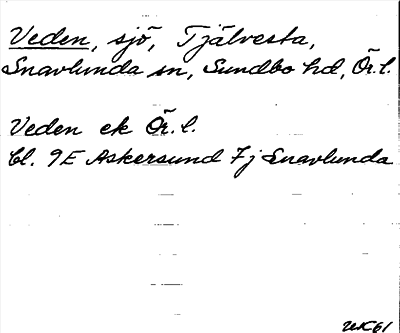 Veden, sjö, Tjälvesta,
Snavlunda sn, Sundbo hd, Ör. l.
Veden ek Ör. l.
Bl. 9E Askersund 7j Snavlunda
UK61